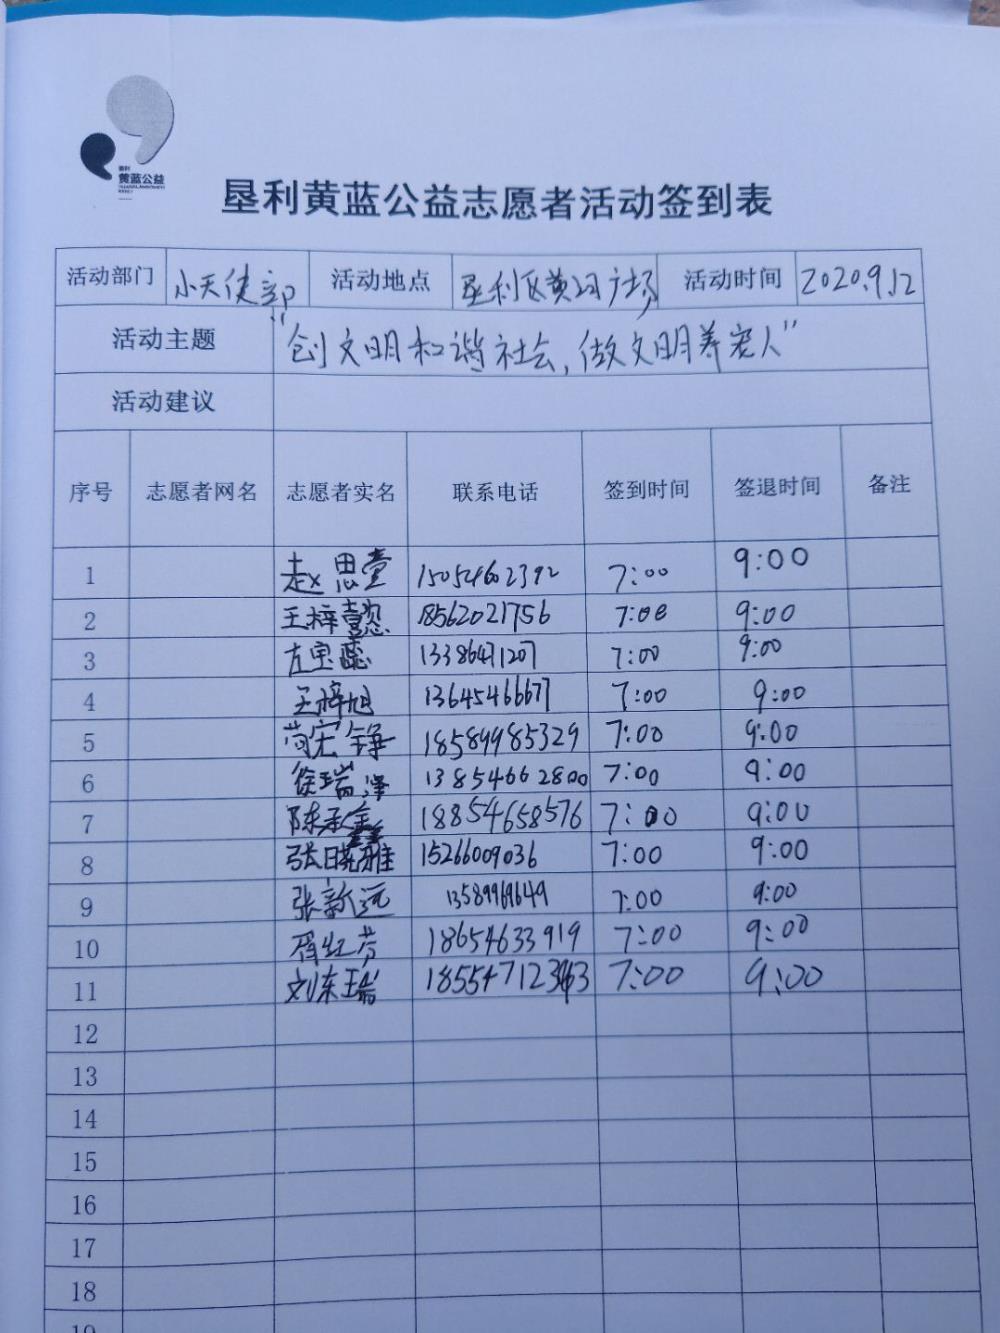 黄蓝公益
垦利黄蓝公益志愿者活动签到表
活动部门 小天使部 活动地点 垦利区黄河广场 活动时间 2020.9.12
活动主题 “创文明和谐社会，做文明养宠人”
活动建议
序号 志愿者网名 志愿者实名 联系电话 签到时间 签退时间 备注
1 赵思萱 15054602392 7:00 9:00
2 王梓懿 18562021756 7:00 9:00
3 左宝懿 13386471207 7:00 9:00
4 王梓旭 13645466677 7:00 9:00
5 苟宏铮 18589985329 7:00 9:00
6 徐瑞泽 13854662800 7:00 9:00
7 陈永鑫 18854658576 7:00 9:00
8 张晓雅 15266009036 7:00 9:00
9 张新远 13589969649 7:00 9:00
10 胥红芬 18654633919 7:00 9:00
11 刘东瑞 7:00 9:00
12
13
14
15
16
17
18
19